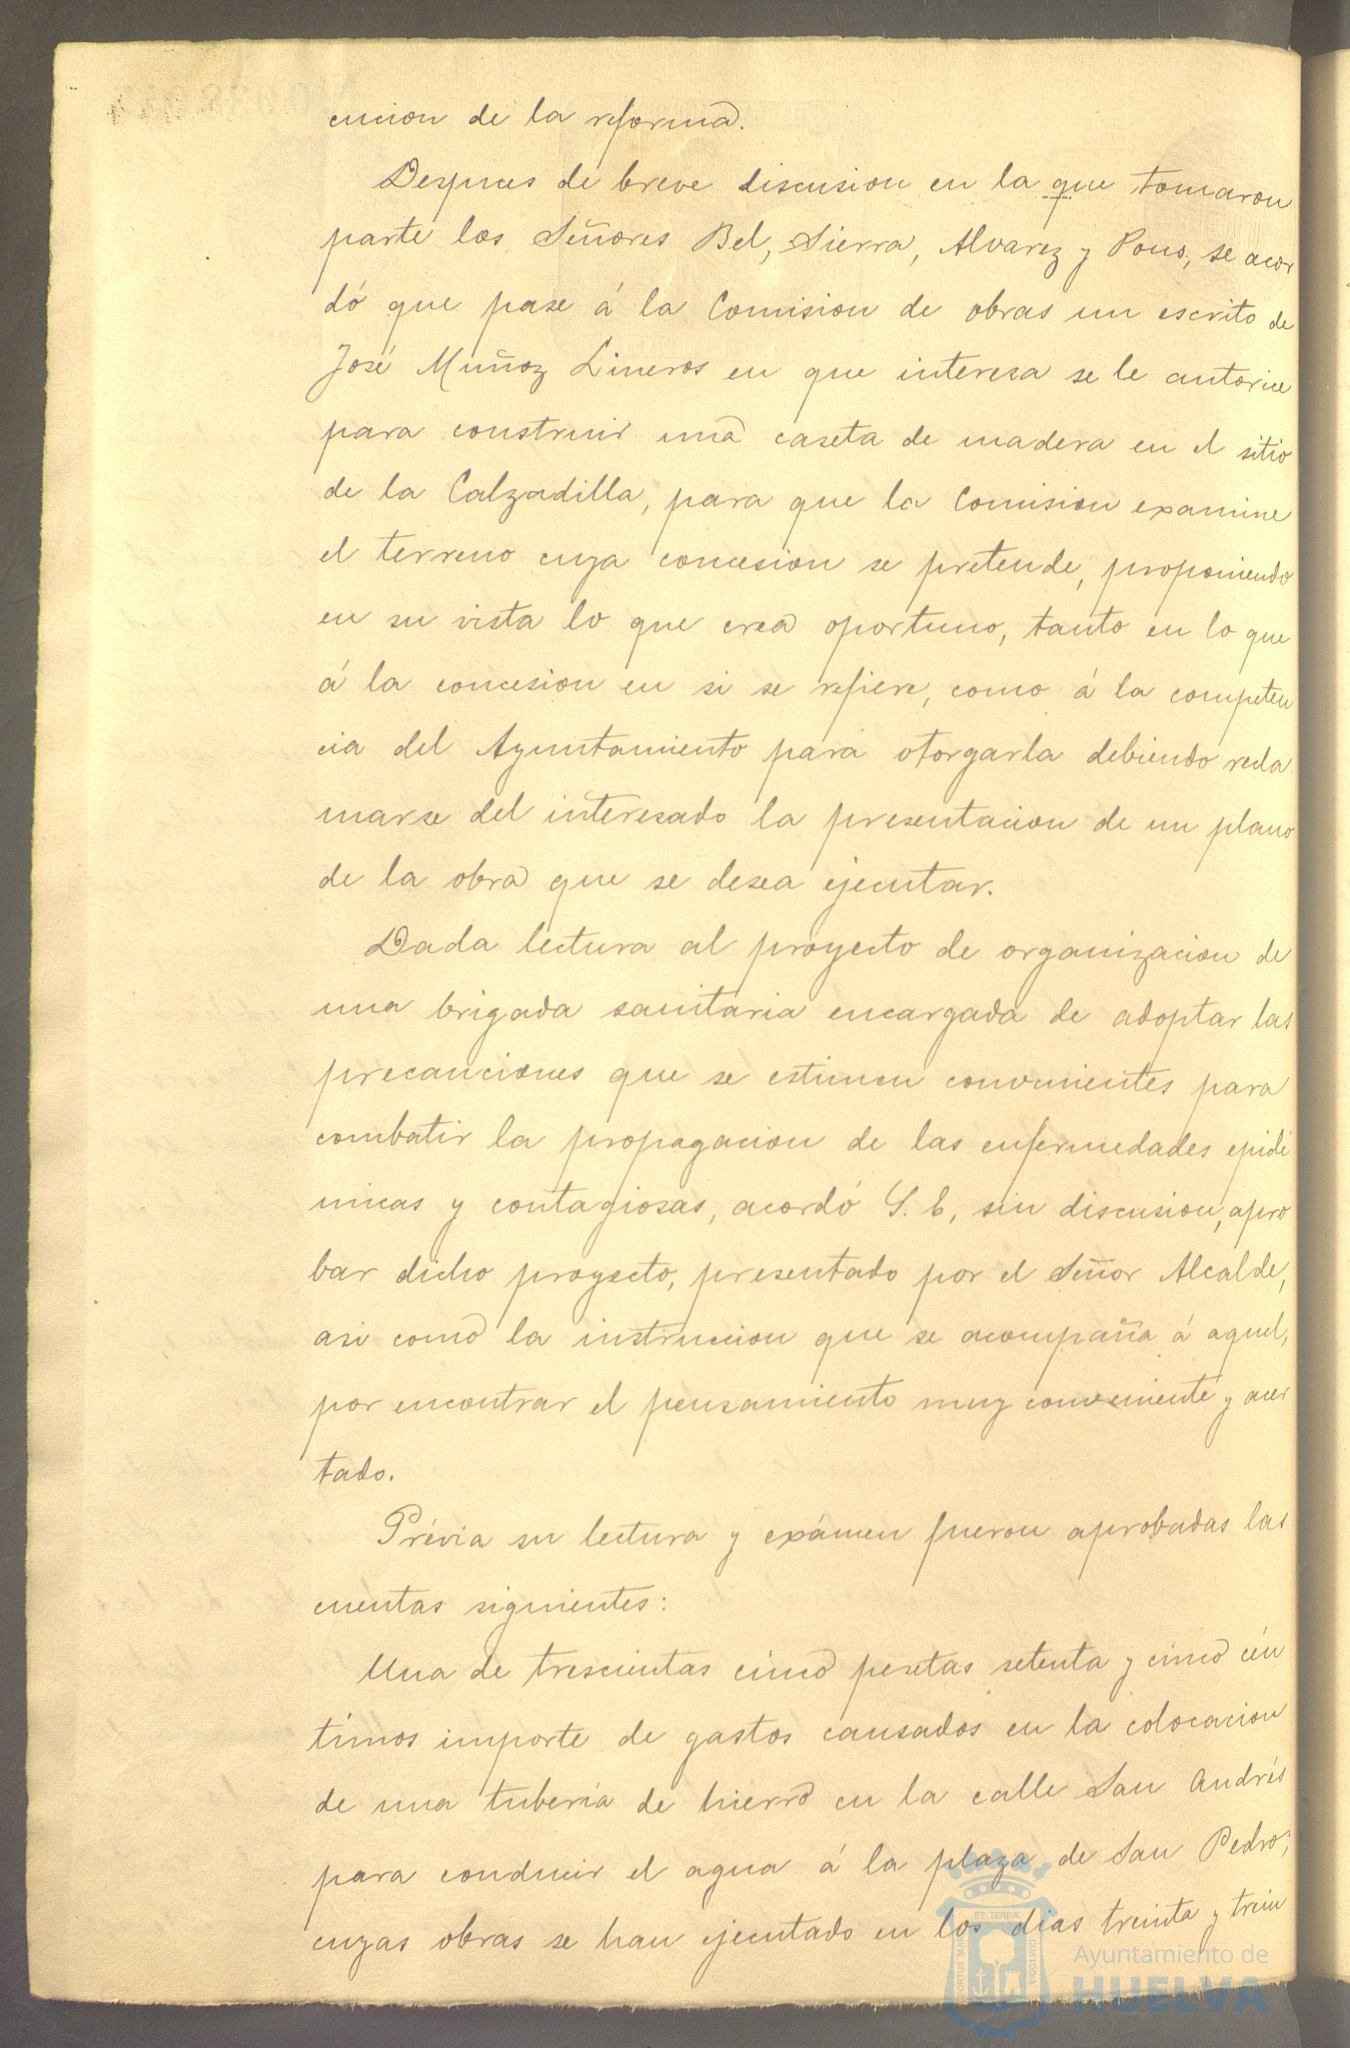 cucion de la reforma.
Despues de breve discusion en la que tomaron
parte los Señores Bel, Sierra, Alvarez y Pons, se acor
dó que pase á la Comision de obras un escrito de
José Muñoz Lineros en que interesa se le autorice
para construir una caseta de madera en el sitio
de la Calzadilla, para que la Comision examine
el terreno cuya concesion se pretende, proponiendo
en su vista lo que crea oportuno, tanto en lo que
á la concesion en si se refiere, como á la competen
cia del Ayuntamiento para otorgarla debiendo recla
marse del interesado la presentacion de un plano
de la obra que se desea ejecutar.
Dada lectura al proyecto de organizacion de
una brigada sanitaria encargada de adoptar las
precauciones que se estimen convenientes para
combatir la propagacion de las enfermedades epidé
micas y contagiosas, acordó S. E, sin discusion, apro
bar dicho proyecto, presentado por el Señor Alcalde,
asi como la instruccion que se acompaña á aquel,
por encontrar el pensamiento muy conveniente y acer
tado.
Prévia su lectura y exámen fueron aprobadas las
cuentas siguientes:
Una de trescientas cinco pesetas setenta y cinco cén
timos importe de gastos causados en la colocacion
de una tubería de hierro en la calle San Andrés
para conducir el agua á la plaza de San Pedro,
cuyas obras se han ejecutado en los dias treinta y trein
Ayuntamiento de
HUELVA